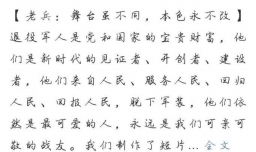 【老兵：舞台虽不同，本色永不改】
退役军人是党和国家的宝贵财富，他
们是新时代的见证者、开创者、建设
者，他们来自人民、服务人民、回归
人民、回报人民，脱下军装，他们依
然是最可爱的人，永远是我们可亲可
敬的战友。我们制作了短片...全文